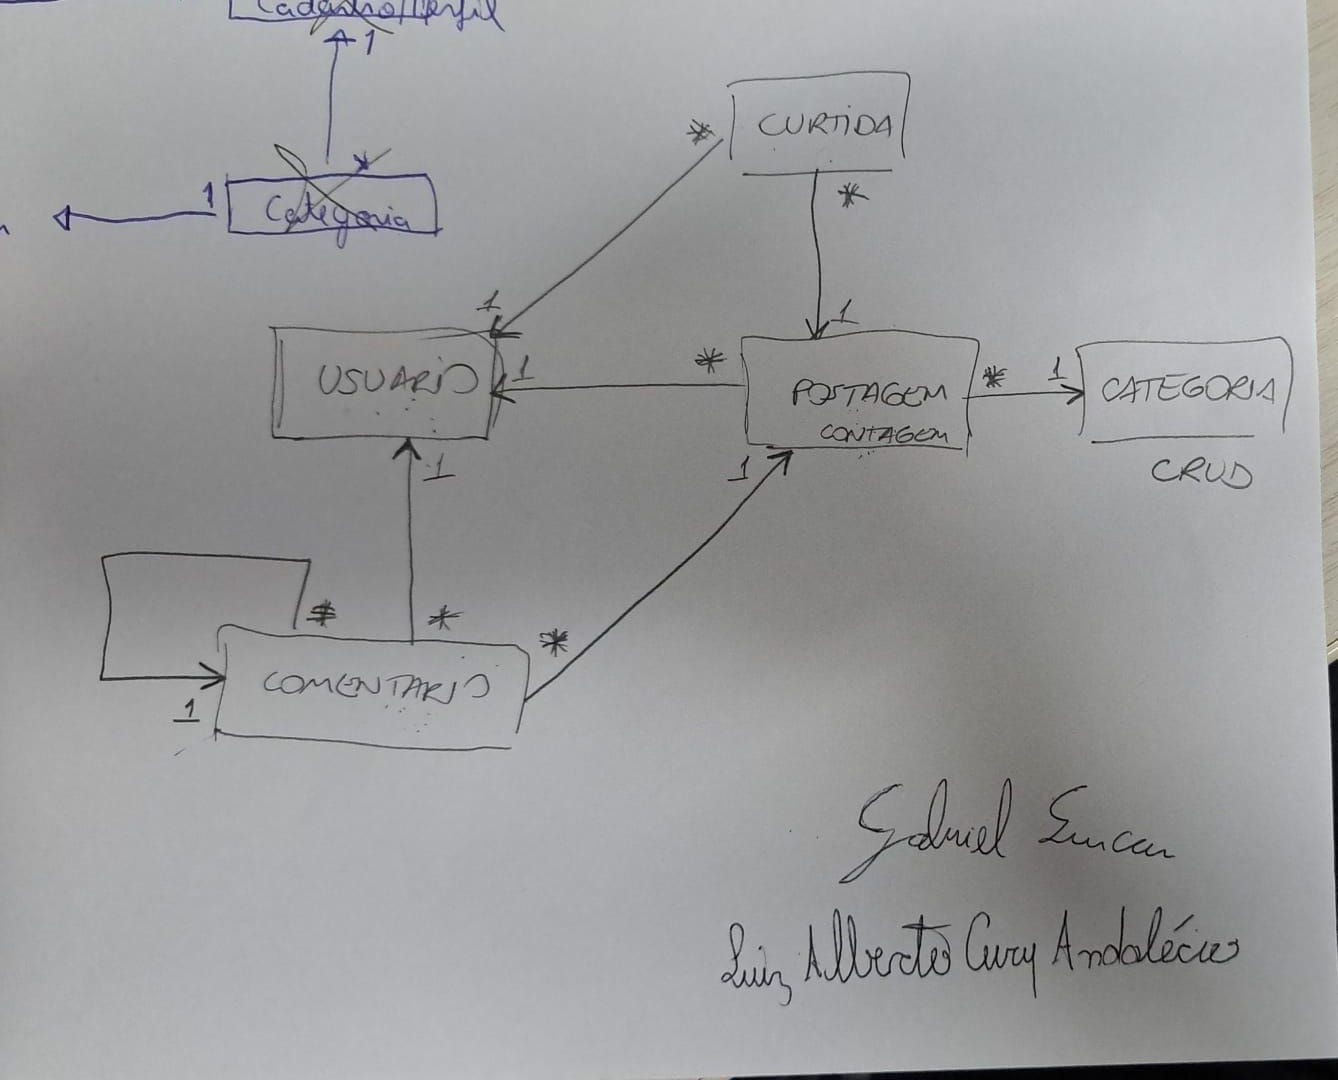 Cadastro/Perfil
1
*
1
Categoria
CURTIDA
*
*
1
1
USUARIO
1
*
POSTAGEM
CONTAGEM
*
1
CATEGORIA
CRUD
1
1
*
*
*
COMENTARIO
1
Gabriel
Luiz Alberto Cury Andalécio